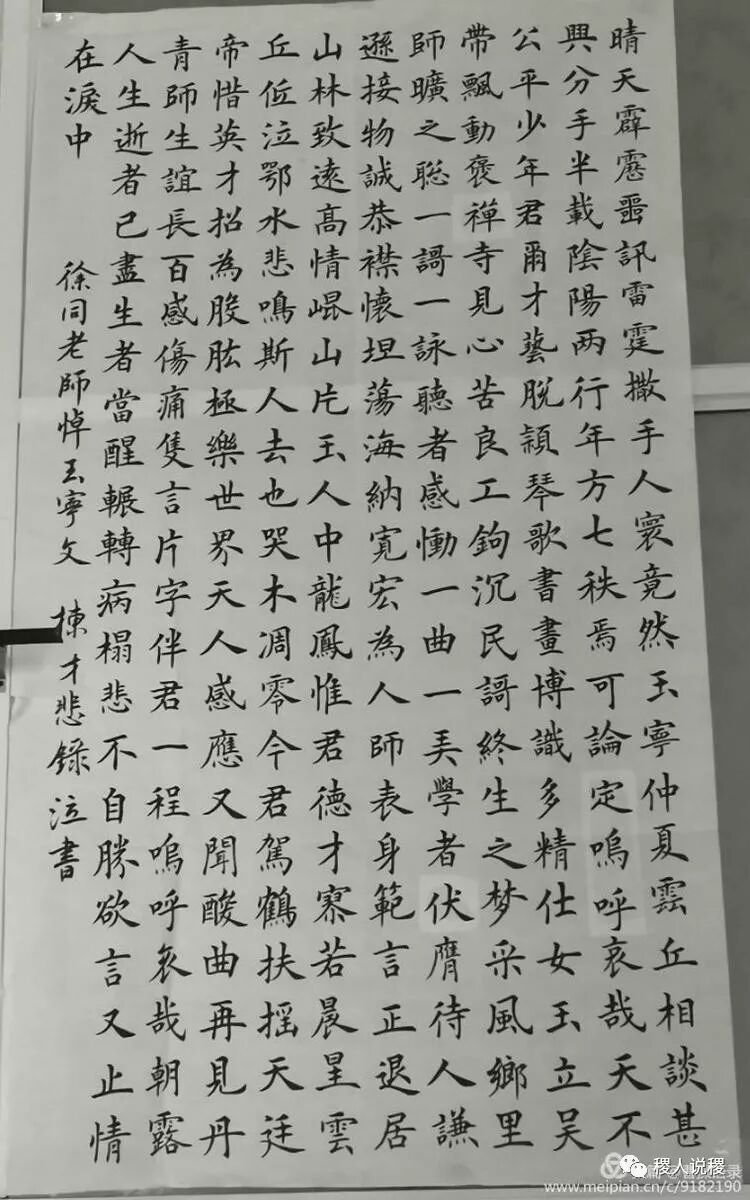 晴天霹靂噩訊雷霆撒手人寰竟然玉寧仲夏雲丘相談甚
興分手半載陰陽两行年方七秩焉可論定嗚呼哀哉天不
公平少年君爾才藝脫穎琴歌書畫博識多精仕女玉立吴
帶飄動褒禪寺見心苦良工鉤沉民謌終生之梦采風鄉里
師曠之聡一謌一詠聽者感慟一曲一美學者伏膺待人謙
遜接物誠恭襟懷坦蕩海納寬宏為人師表身範言正退居
山林致遠高情崐山片玉人中龍鳳惟君德才寥若晨星雲
丘低泣鄂水悲鳴斯人去也哭木凋零今君駕鶴扶摇天廷
帝惜英才招為股肱極樂世界天人感應又聞酸曲再見丹
青師生誼長百感傷痛隻言片字伴君一程嗚呼哀哉朝露
人生逝者已盡生者當醒輾轉病榻悲不自勝欲言又止情
在淚中
徐同老師悼玉寧文 棟才悲錄泣書
稷人说稷
www.meipian.cn/c/9182190